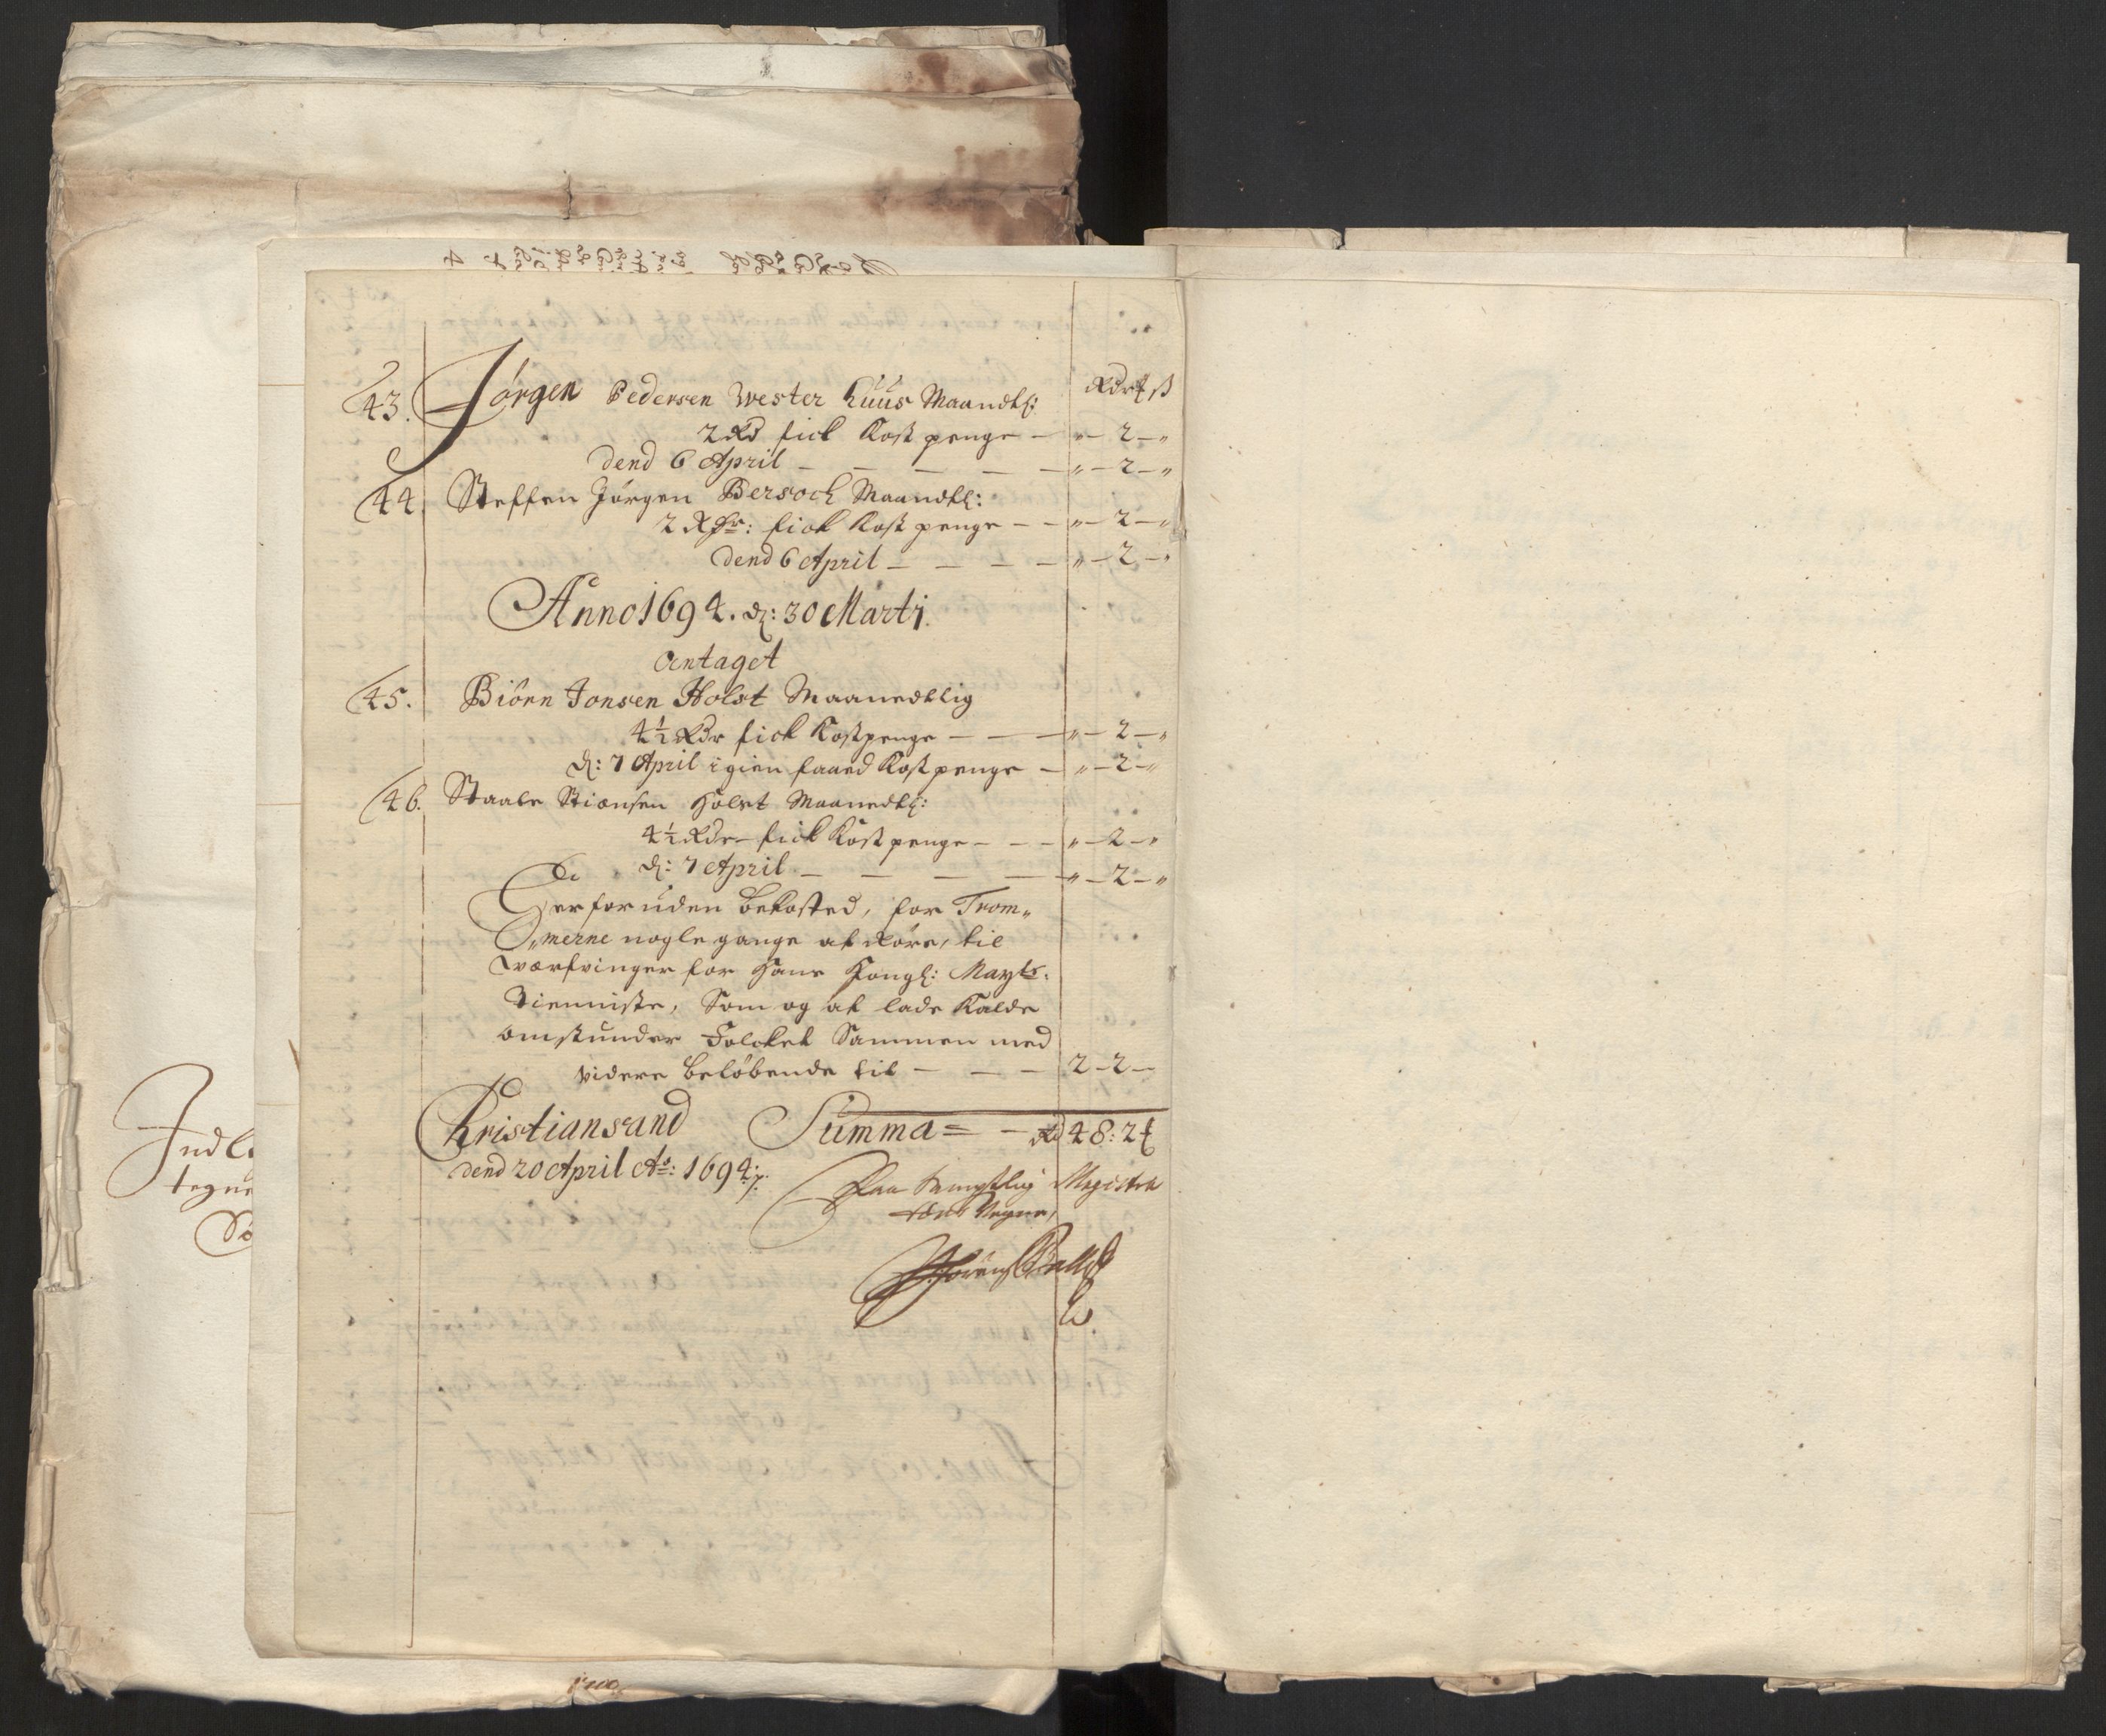 Rdr ꝉ ß
43. Jörgen Pedersen Wester huus Maandtl:
2 Rd fick Kost penge — „— 2 —„
dend 6 April — — — — „— 2 —„
44. Steffen Jörgen Bersoch Maandtl:
2 Rdr: fick Kost penge — — „— 2 —„
dend 6 April — — — — „— 2 —„
Anno 1694. d: 30 Marti.
Antaget
45. Biörn Jonsen Holst Maanedtlig
4½ Rdr fick Kostpenge — — „— 2 —„
d: 7 April igien faaed Kost penge — „— 2 —„
46. Staale Stiensen Holst Maanedtl:
4½ Rdr fick Kost penge — — „— 2 —„
d: 7 April — — — — „— 2 —„
Der foruden bekosted, for Trom„
„merne nogle gange at röre, til
werfvinger for Hans Kongl: Mayts:
tienniste, Som og at lade Kalde
omstunder Folcket Sammen med
videre belöbende til — — — 2 — 2 —
Christiansand Summa = — Rd 48: 2 ꝉ
dend 20 April Ao: 1694
Paa samptlig Magistra
tens Vegne,
Indl
tegne
So